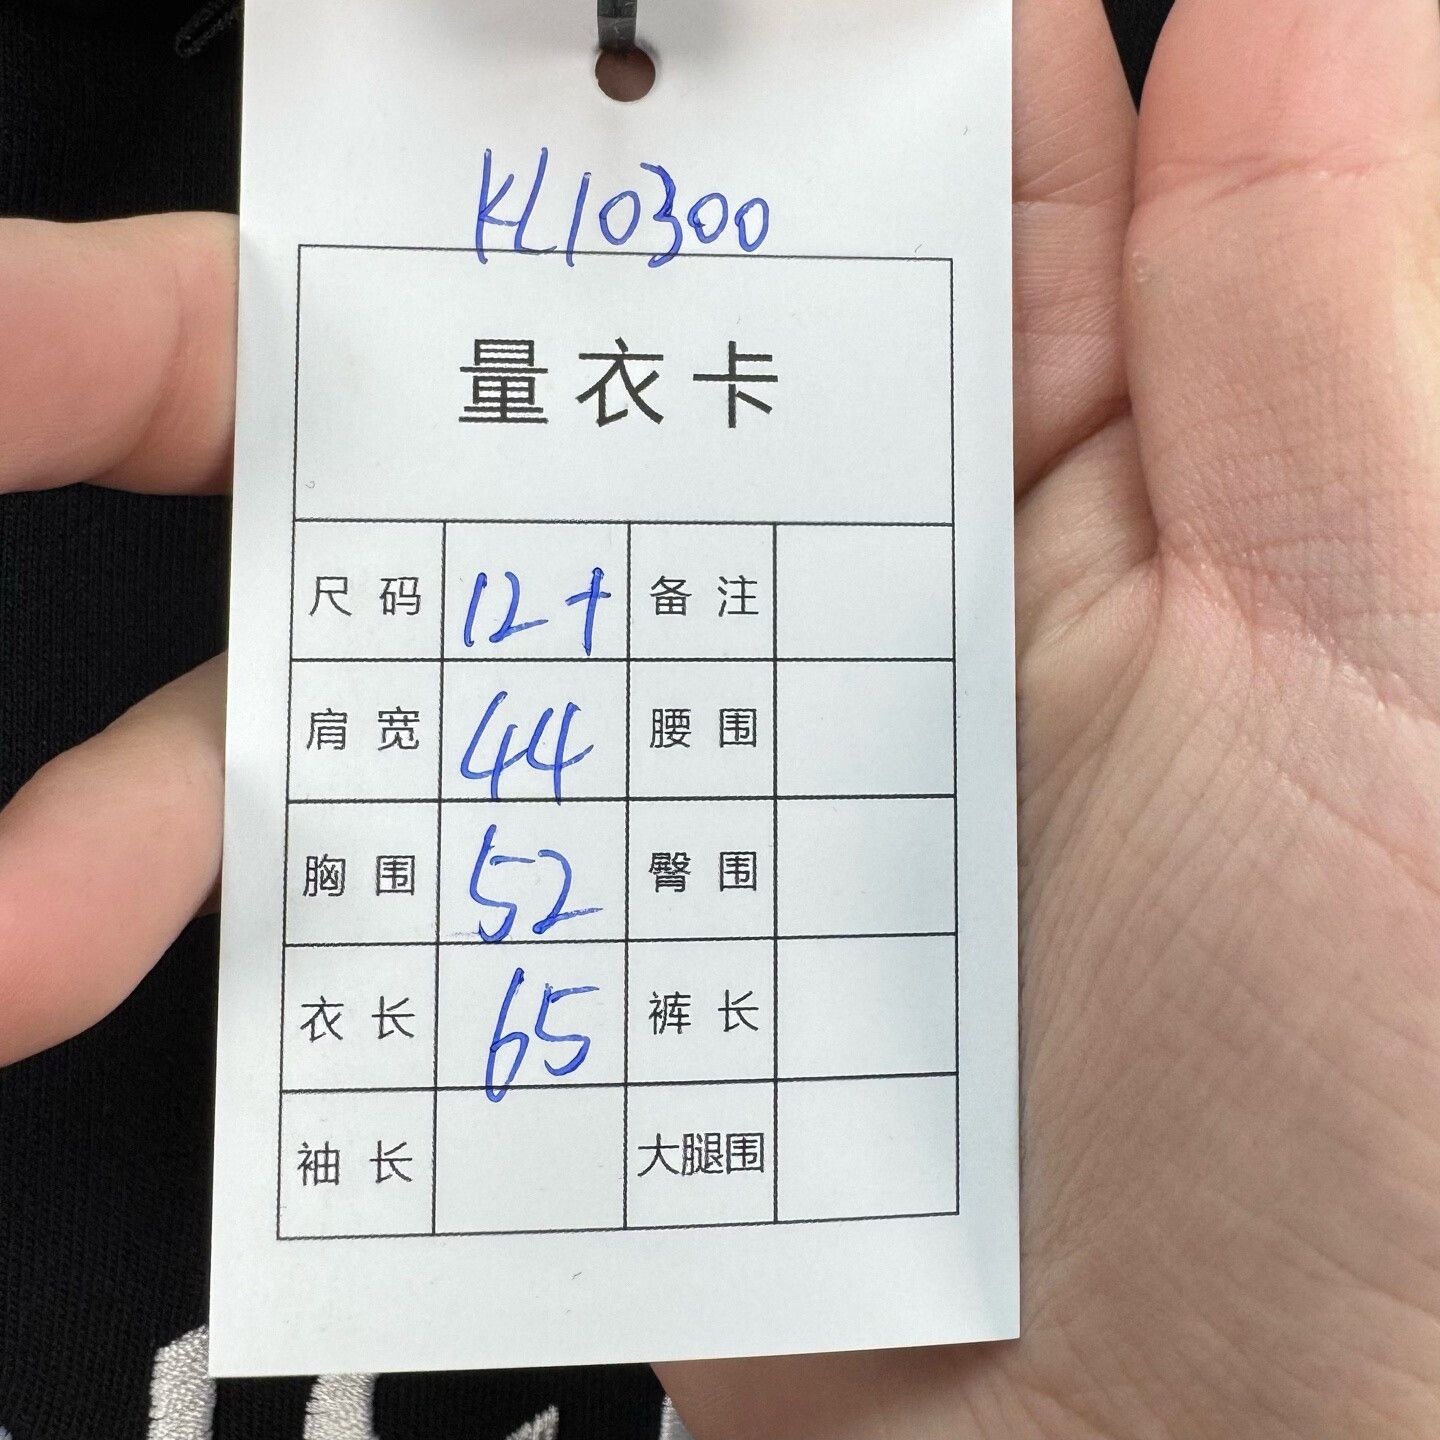 KL10300
量衣卡
尺码 12+ 备注
肩宽 44 腰围
胸围 52 臀围
衣长 65 裤长
袖长 大腿围